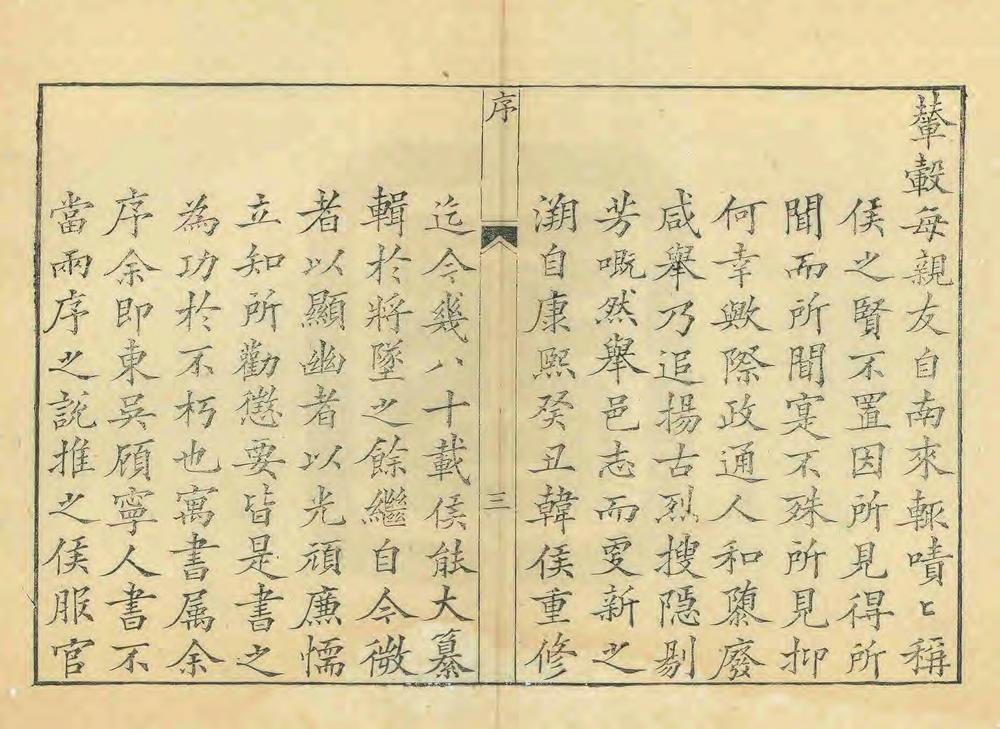 輦轂每親友自南來輒嘖〻稱
侯之賢不置因所見得所
聞而所聞寔不殊所見抑
何幸歟際政通人和隳廢
咸舉乃追揚古烈搜隱剔
芳嘅然舉邑志而更新之
溯自康熙癸丑韓侯重修
序
三
迄今幾八十載侯能大纂
輯於將墜之餘繼自今微
者以顯幽者以光頑廉懦
立知所勸懲要皆是書之
為功於不朽也寓書属余
序余即東吳顧寧人書不
當兩序之說推之侯服官